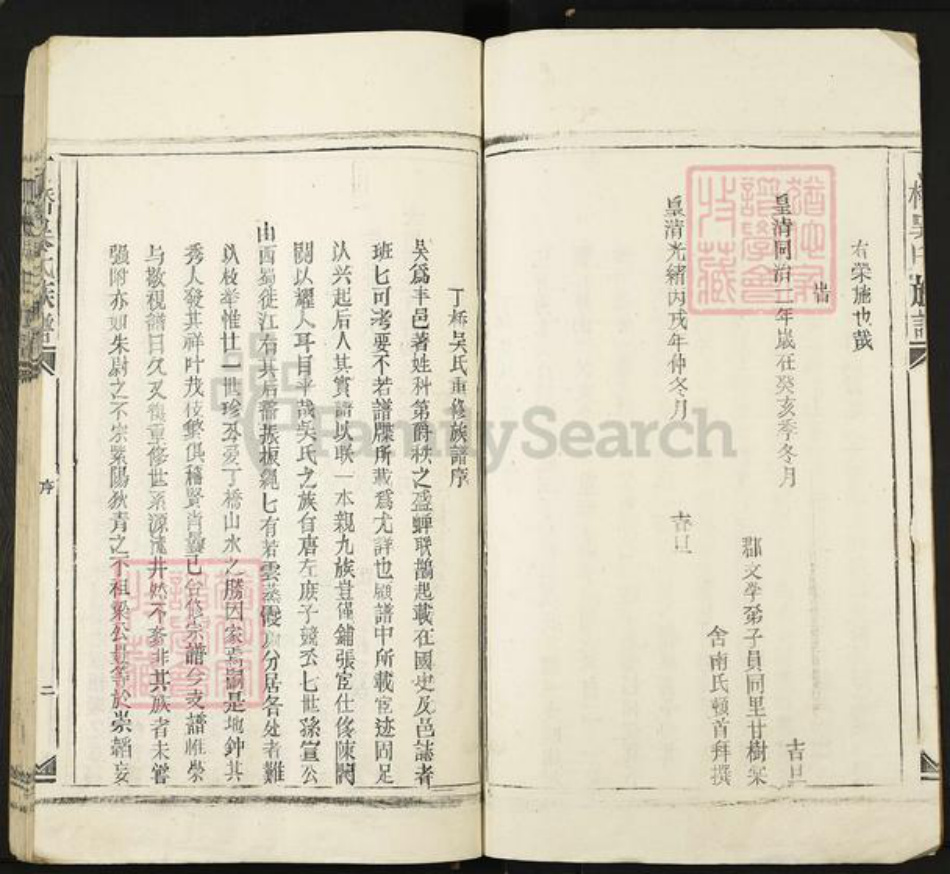 右榮施也哉
旹
皇清同治二年歲在癸亥季冬月 吉旦
郡文學弟子員同里甘樹棠
舍南氏頓首拜撰
皇清光緒丙戌年仲冬月 吉旦
丁橋吳氏重修族譜序
吳爲丰邑著姓科第爵秩之盛蟬联鵲起載在國史及邑誌者
班匕可考要不若譜牒所載爲尤詳也顧譜中所載宦迹固足
以兴起后人其實譜以联一本親九族豈僅鋪張宦仕侈陳閥
閱以耀人耳目乎哉吳氏之族自唐左庶子競公七世孫宣公
由西蜀徙江右其后蕃振振繩匕有若雲蒸霞分居各处者難
以枚举惟廿一世珍公爱丁橋山水之勝因家焉嗣是地鈡其
秀人發其祥叶茂伎繁俱稱賢肖曩已合修宗譜今支譜惟榮
与敬視譜日久又復重修世系源流井然不紊非其族者未嘗
强附亦如朱尉之不宗紫陽狄青之不祖梁公豈等於崇韜妄
橋吳氏族譜
序
二
FamilySearch